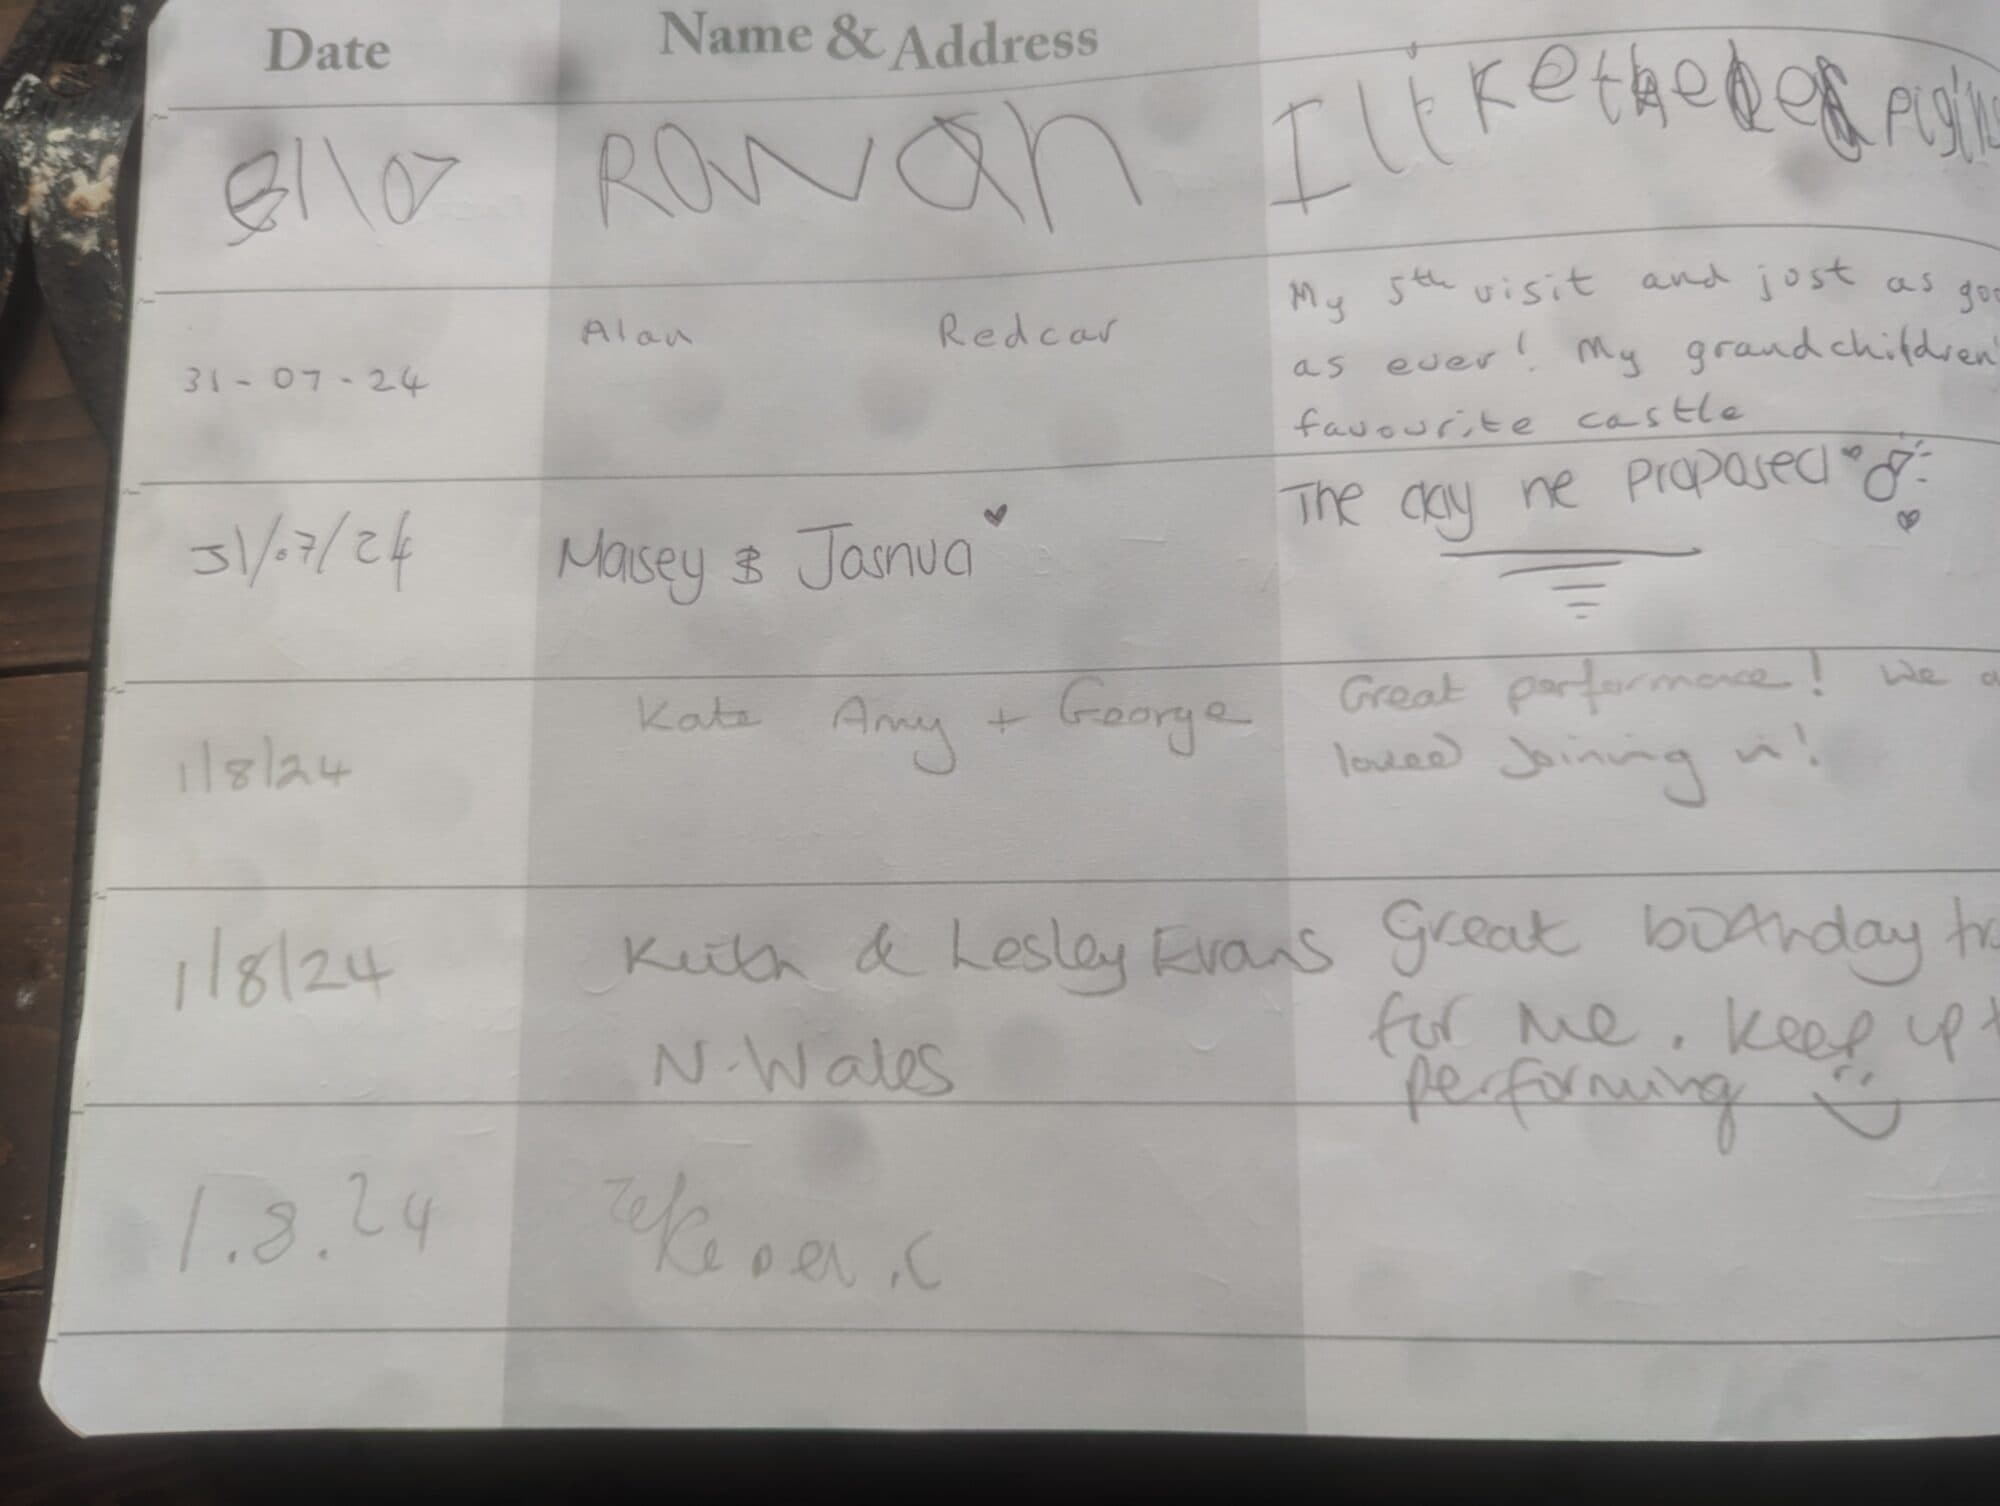 Date Name & Address
Rowan I like the pigins
31-07-24 Alan Redcar My 5th visit and just as
as ever! My grandchildren's
favourite castle
31/07/24 Maisey & Joshua The day he proposed
1/8/24 Kate Amy + George Great performance! We
loved joining in!
1/8/24 Keith & Lesley Evans Great birthday
N. Wales for me. Keep up
performing
1.8.24